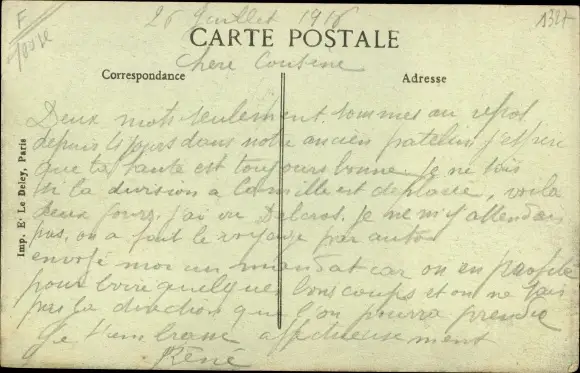 F
1327
26 Juillet 1916
CARTE POSTALE
Chere Cousine
Correspondance
Adresse
Deux mots seulement sommes au repos
depuis 4 jours dans notre ancien patelin j'espere
que ta sante est toujours bonne je ne sais
si la division a est deplacée, voila
deux jours j'ai vu Delcros. je ne m'y attendais
pas, on a fait le voyage par auto
envoye moi un mandat car on en profite
pour boire quelques bons coups et on ne sais
pas la direction que l'on pourra prendre
Je t'embrasse affectueusement
René
Imp. E. Le Deley, Paris